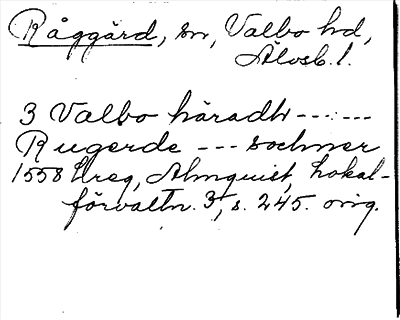 Råggärd, sn, Valbo hd,
Älvsb. l.
3 Valbo häradh - - - - -
Rugerde - - - sochner
1558 Ureg, Almquist, Lokal-
förvaltn. 3, s. 245. orig.